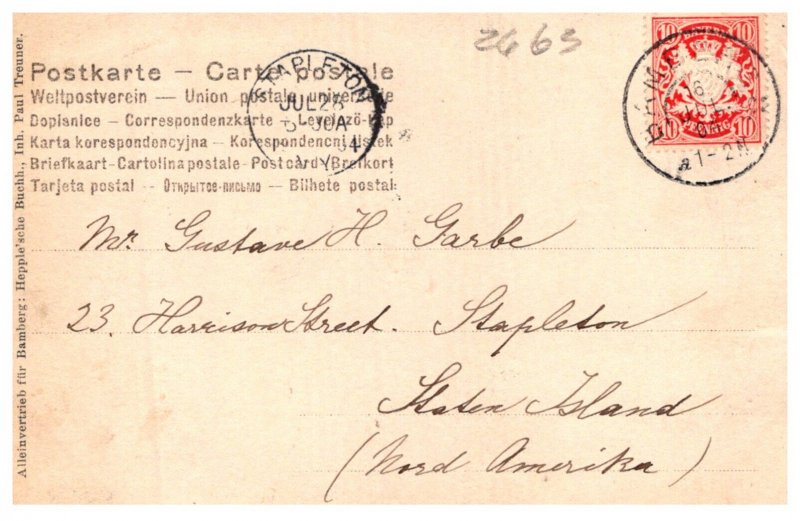 2663
Postkarte – Carte postale
Weltpostverein – Union postale universelle
Dopisnice – Correspondenzkarte – Levelező-Lap
Karta korespondencyjna – Korespondencnj listek
Briefkaart – Cartolina postale – Post card – Brefkort
Tarjeta postal – Открытое письмо – Bilhete postal
STAPLETON
JUL 28
N.Y.
10 BAYERN 10
10 PFENNIG 10
BAMBERG
1-2N
Mr. Gustave H. Garbe
23. Harrison Street. Stapleton
Staten Island
(Nord Amerika)
Alleinvertrieb für Bamberg: Hepple'sche Buchh., Inh. Paul Treuner.